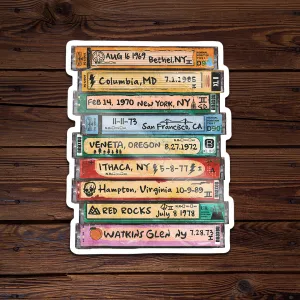 AUG 16 1969 Bethel, NY
Columbia, MD 7.1.1985
Feb 14, 1970 NEW YORK, NY
11-11-73 San Francisco, CA
VENETA, OREGON 8.27.1972
ITHACA, NY 5-8-77
Hampton, Virginia 10-9-89
RED ROCKS July 8 1978
WATKINS GLEN NY 7.28.73